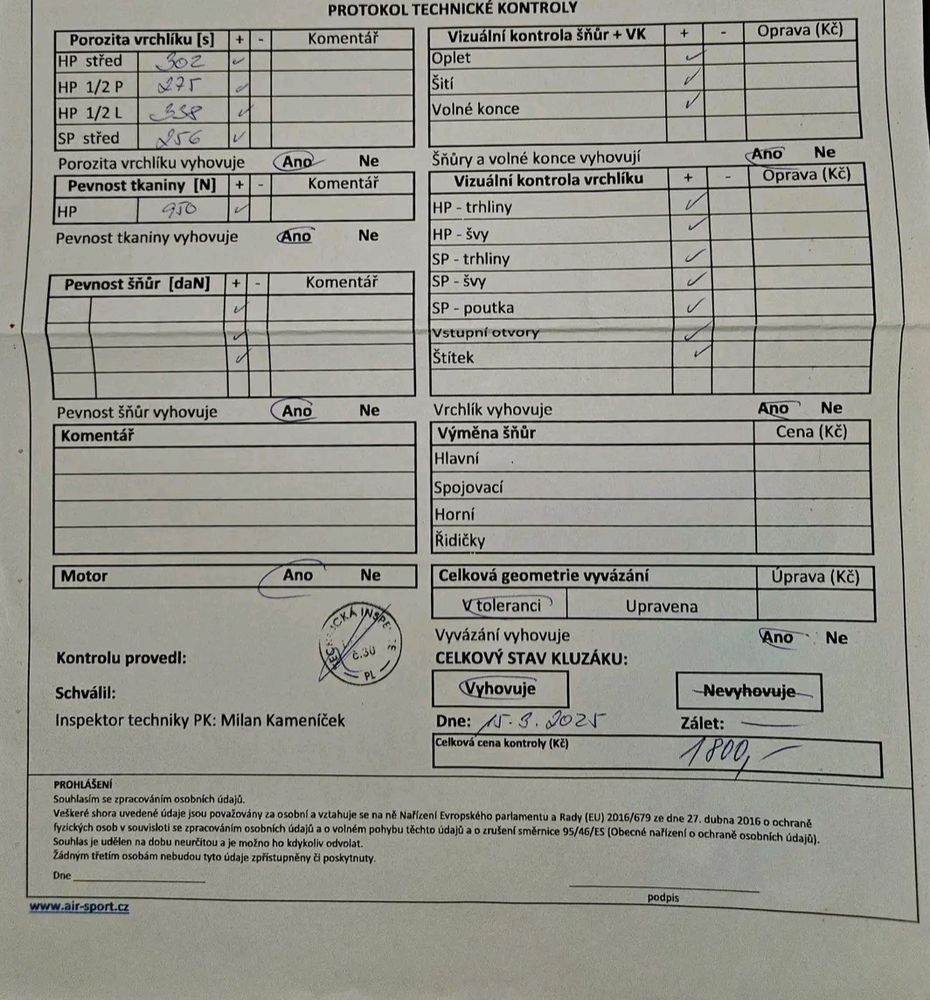 PROTOKOL TECHNICKÉ KONTROLY
Porozita vrchlíku [s] + - Komentář
HP střed 302 ✓
HP 1/2 P 275 ✓
HP 1/2 L 338 ✓
SP střed 256 ✓
Porozita vrchlíku vyhovuje Ano Ne
Pevnost tkaniny [N] + - Komentář
HP 950 ✓
Pevnost tkaniny vyhovuje Ano Ne
Pevnost šňůr [daN] + - Komentář
✓
✓
✓
Pevnost šňůr vyhovuje Ano Ne
Komentář
Motor Ano Ne
Kontrolu provedl:
Schválil:
Inspektor techniky PK: Milan Kameníček
TECHNICKÁ INSPE
č.30
PL
Vizuální kontrola šňůr + VK + - Oprava (Kč)
Oplet ✓
Šití ✓
Volné konce ✓
Šňůry a volné konce vyhovují Ano Ne
Vizuální kontrola vrchlíku + - Oprava (Kč)
HP - trhliny ✓
HP - švy ✓
SP - trhliny ✓
SP - švy ✓
SP - poutka ✓
Vstupní otvory ✓
Štítek ✓
Vrchlík vyhovuje Ano Ne
Výměna šňůr Cena (Kč)
Hlavní
Spojovací
Horní
Řidičky
Celková geometrie vyvázání Úprava (Kč)
V toleranci Upravena
Vyvázání vyhovuje Ano Ne
CELKOVÝ STAV KLUZÁKU:
Vyhovuje Nevyhovuje
Dne: 15.3.2025 Zálet: —
Celková cena kontroly (Kč) 1800,-
PROHLÁŠENÍ
Souhlasím se zpracováním osobních údajů.
Veškeré shora uvedené údaje jsou považovány za osobní a vztahuje se na ně Nařízení Evropského parlamentu a Rady (EU) 2016/679 ze dne 27. dubna 2016 o ochraně
fyzických osob v souvisloti se zpracováním osobních údajů a o volném pohybu těchto údajů a o zrušení směrnice 95/46/ES (Obecné nařízení o ochraně osobních údajů).
Souhlas je udělen na dobu neurčitou a je možno ho kdykoliv odvolat.
Žádným třetím osobám nebudou tyto údaje zpřístupněny či poskytnuty.
Dne
podpis
www.air-sport.cz